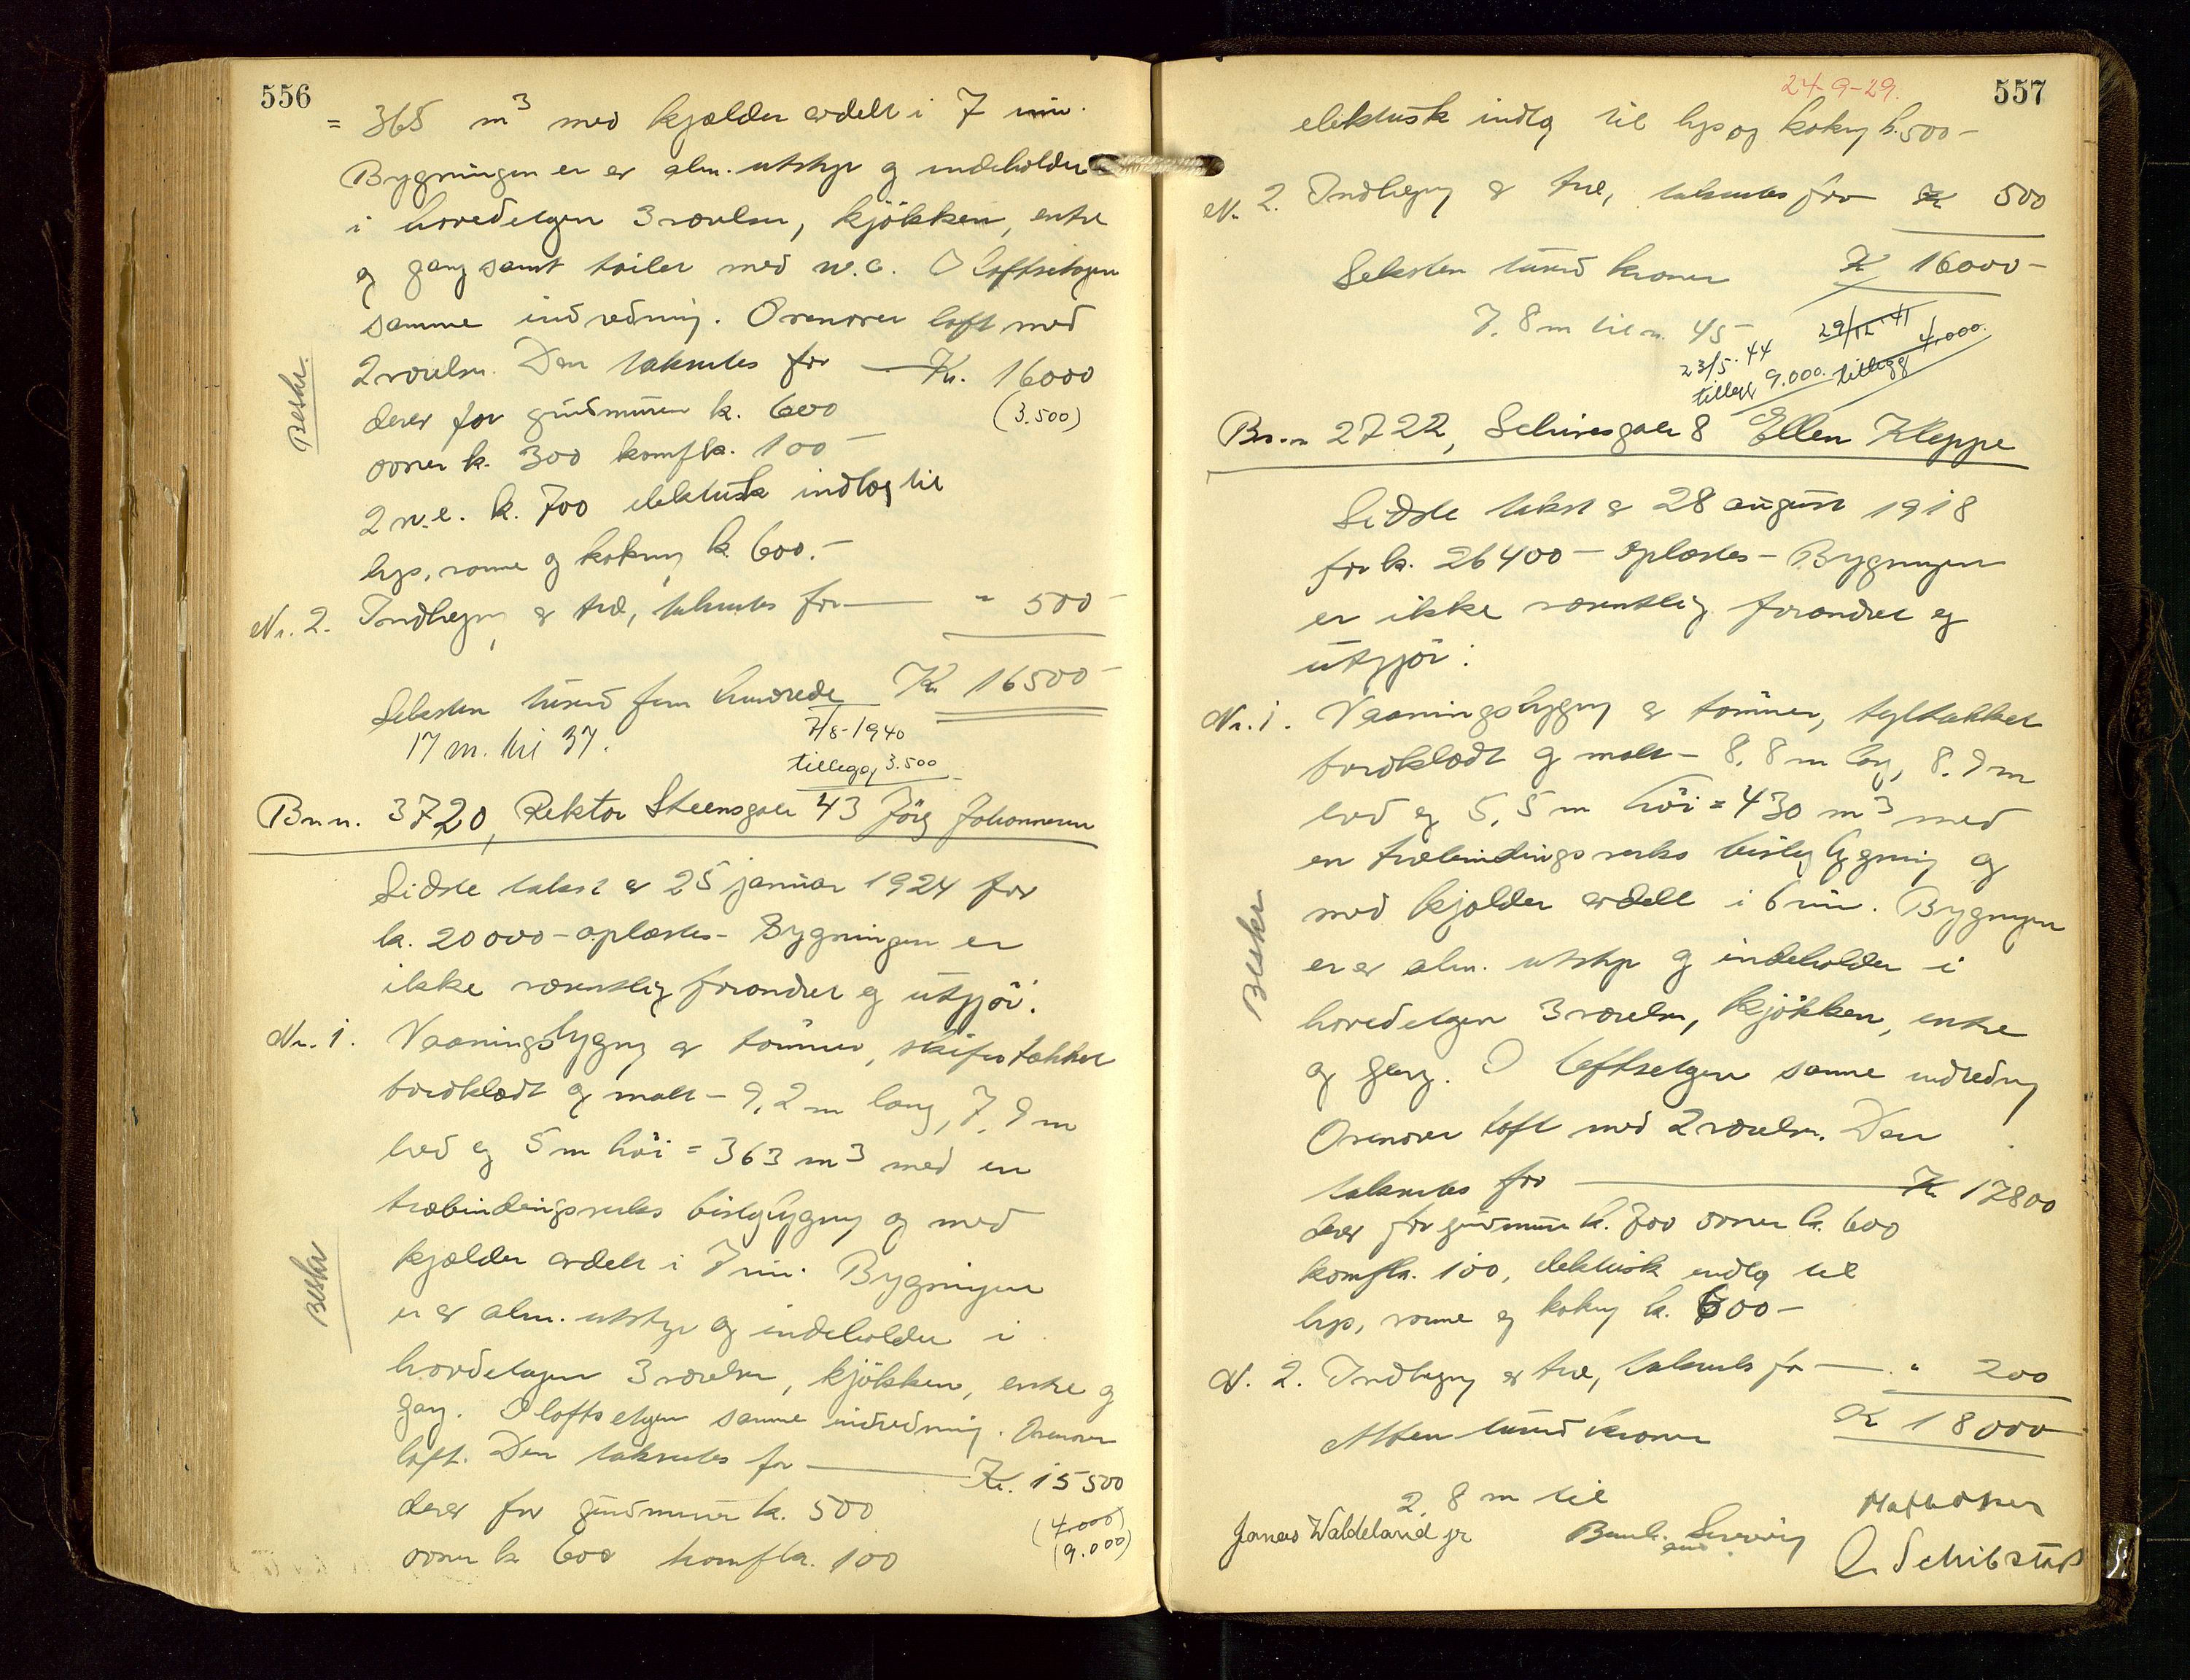 556
= 365 m³ med kjælder avdelt i 7 rum.
Bygningen er av alm. utstyr og indeholder
i hovedetagen 3 værelser, kjökken, entre
og gang samt toilet med w.c. I loftsetagen
samme indredning. Ovenover loft med
2 værelser. Den takseres for — Kr. 16000
derav for grundmuren kr. 600 (3.500)
ovner kr. 300 komfyr kr. 100 —
2 w.c. kr. 700 elektrisk indlæg til
lys, varme og kokning kr. 600.—
Beskr.
Nr. 2. Indhegning av træ, takseres for — " 500 —
Seksten tusind fem hundrede Kr. 16500 —
17 m. til 37.
7/8-1940
tillegg 3.500
Br.nr. 3720, Rektor Steensgate 43 Jörg Johannesen
Sidste takst av 25 januar 1924 for
kr. 20000 — oplæstes — Bygningen er
ikke væsentlig forandret og utgjör:
Nr. 1. Vaaningsbygning av tömmer, skifertækket
bordklædt og malt — 9,2 m lang, 7,9 m
bred og 5 m höi = 363 m³ med en
træbindingsverks bislagbygning og med
kjælder avdelt i 7 rum. Bygningen
er av alm. utstyr og indeholder i
hovedetagen 3 værelser, kjökken, entre og
gang. I loftsetagen samme indredning. Ovenover
loft. Den takseres for — Kr. 15500
derav for grundmuren kr. 500 (4.000)
ovner kr. 600 komfyr kr. 100 (9.000)
Beskr
24-9-29.
557
elektrisk indlæg til lys og kokning kr. 500 —
Nr. 2. Indhegning av træ, takseres for Kr 500
Seksten tusind kroner Kr 16000 —
7,8 m til nr. 45 —
29/12-41
tillegg 4.000.
23/5-44
tillegg 9.000.
Br.nr. 2722, Schivesgate 8 Ellen Kleppe
Sidste takst av 28 august 1918
for kr. 26400 — oplæstes — Bygningen
er ikke væsentlig forandret og
utgjör:
Nr. 1. Vaaningsbygning av tömmer, tegltækket
bordklædt og malt — 8,8 m lang, 8,9 m
bred og 5,5 m höi = 430 m³ med
en træbindingsverks bislagbygning og
med kjælder avdelt i 6 rum. Bygningen
er av alm. utstyr og indeholder i
hovedetagen 3 værelser, kjökken, entre
og gang. I loftsetagen samme indredning
Ovenover loft med 2 værelser. Den
takseres for — Kr. 17800
derav for grundmuren kr. 700 ovner kr. 600
komfyr kr. 100, elektrisk indlæg til
lys, varme og kokning kr. 600 —
Beskr
N. 2. Indhegning av træ, takseres for — " 200
Atten tusind kroner Kr 18000
2,8 m til
Jonas Waldeland jr
Schibstad